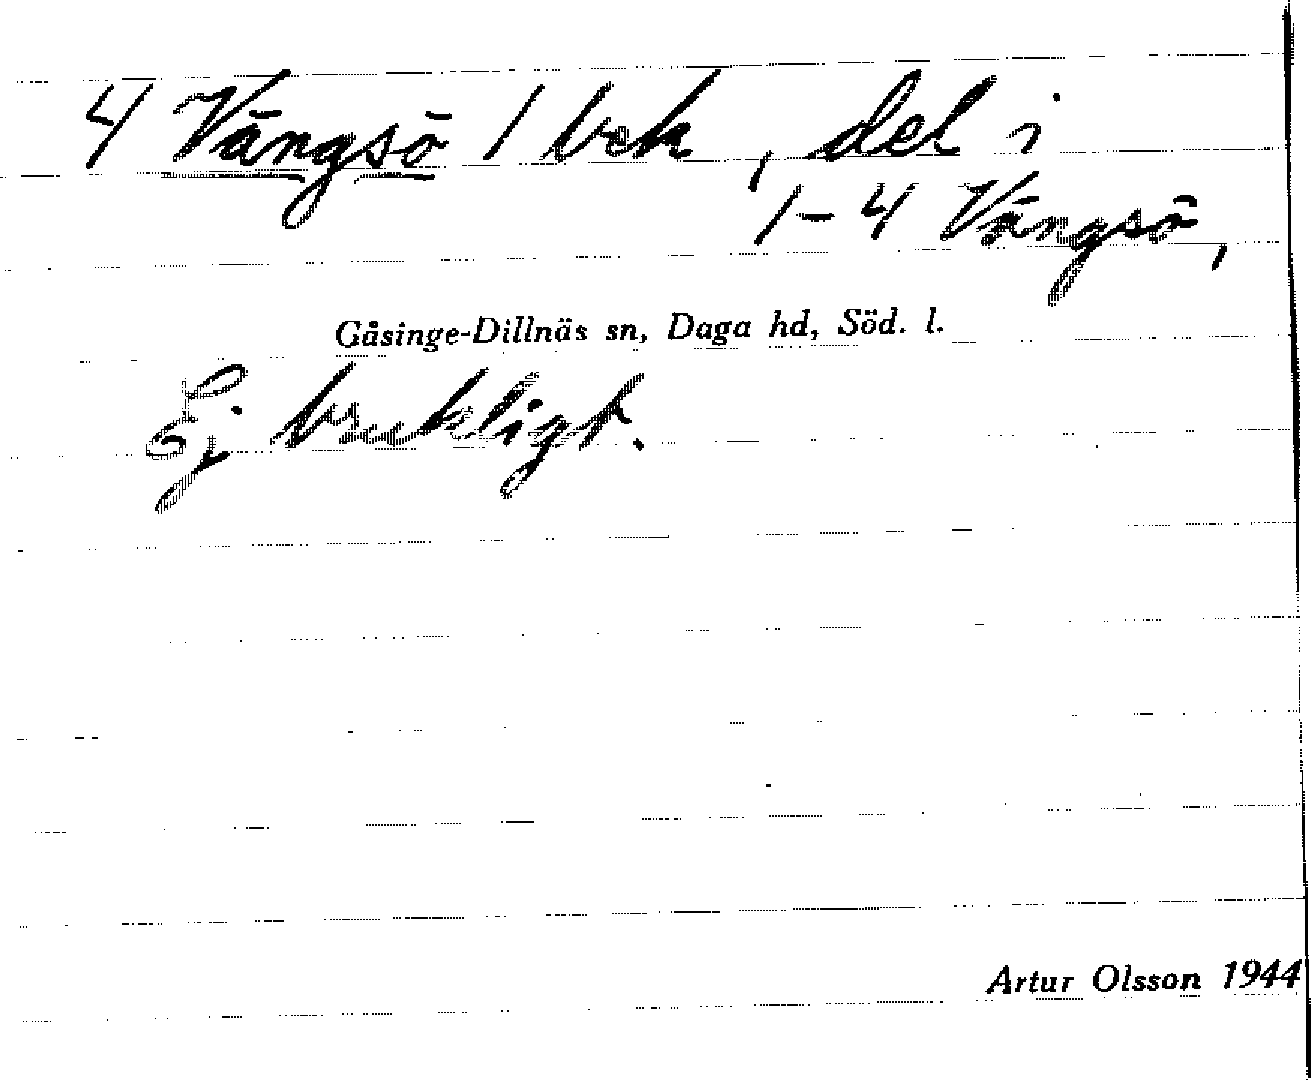 4/ Vängsö 1 bek, del i
1-4 Vängsö,
Gåsinge-Dillnäs sn, Daga hd, Söd. l.
Ej brukligt.
Artur Olsson 1944